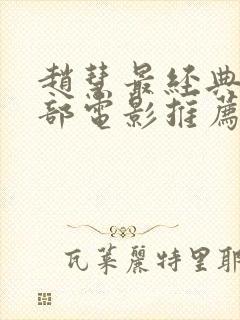 趙慧最經典
部電影推薦
瓦萊麗特里耶